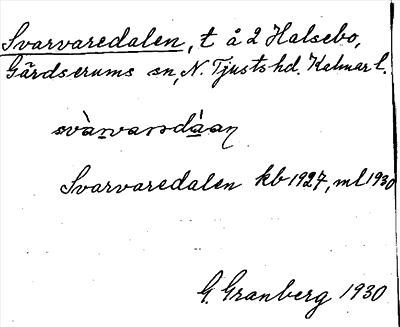 Svarvaredalen, t å 2 Halsebo,
Gärdserums sn, N. Tjusts hd. Kalmar l.
Svarvaredalen kb 1927, ml 1930
G. Granberg 1930